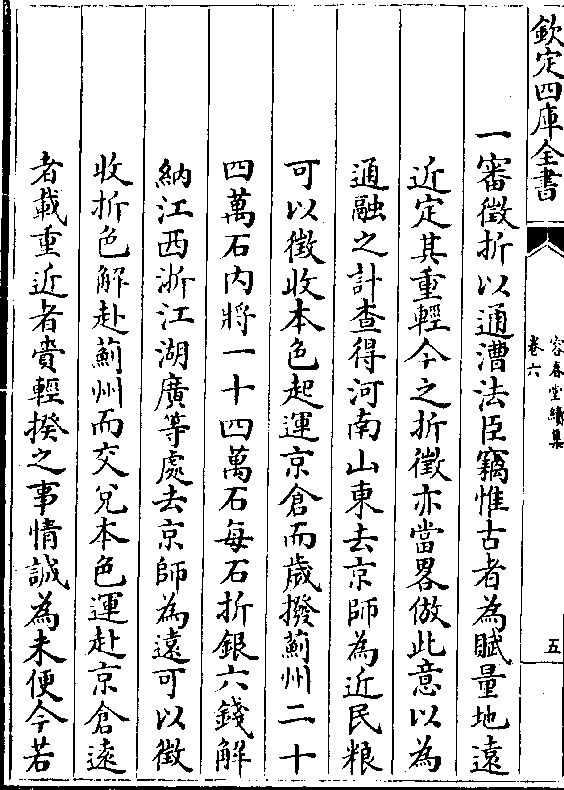 欽定四庫全書
容春堂續集
卷六
五
一審徵折以通漕法臣竊惟古者為賦量地遠
近定其重輕今之折徵亦當畧倣此意以為
通融之計查得河南山東去京師為近民粮
可以徵收本色起運京倉而歲撥薊州二十
四萬石內將一十四萬石每石折銀六錢解
納江西浙江湖廣等處去京師為遠可以徵
收折色解赴薊州而交兌本色運赴京倉遠
者載重近者賫輕揆之事情誠為未便今若